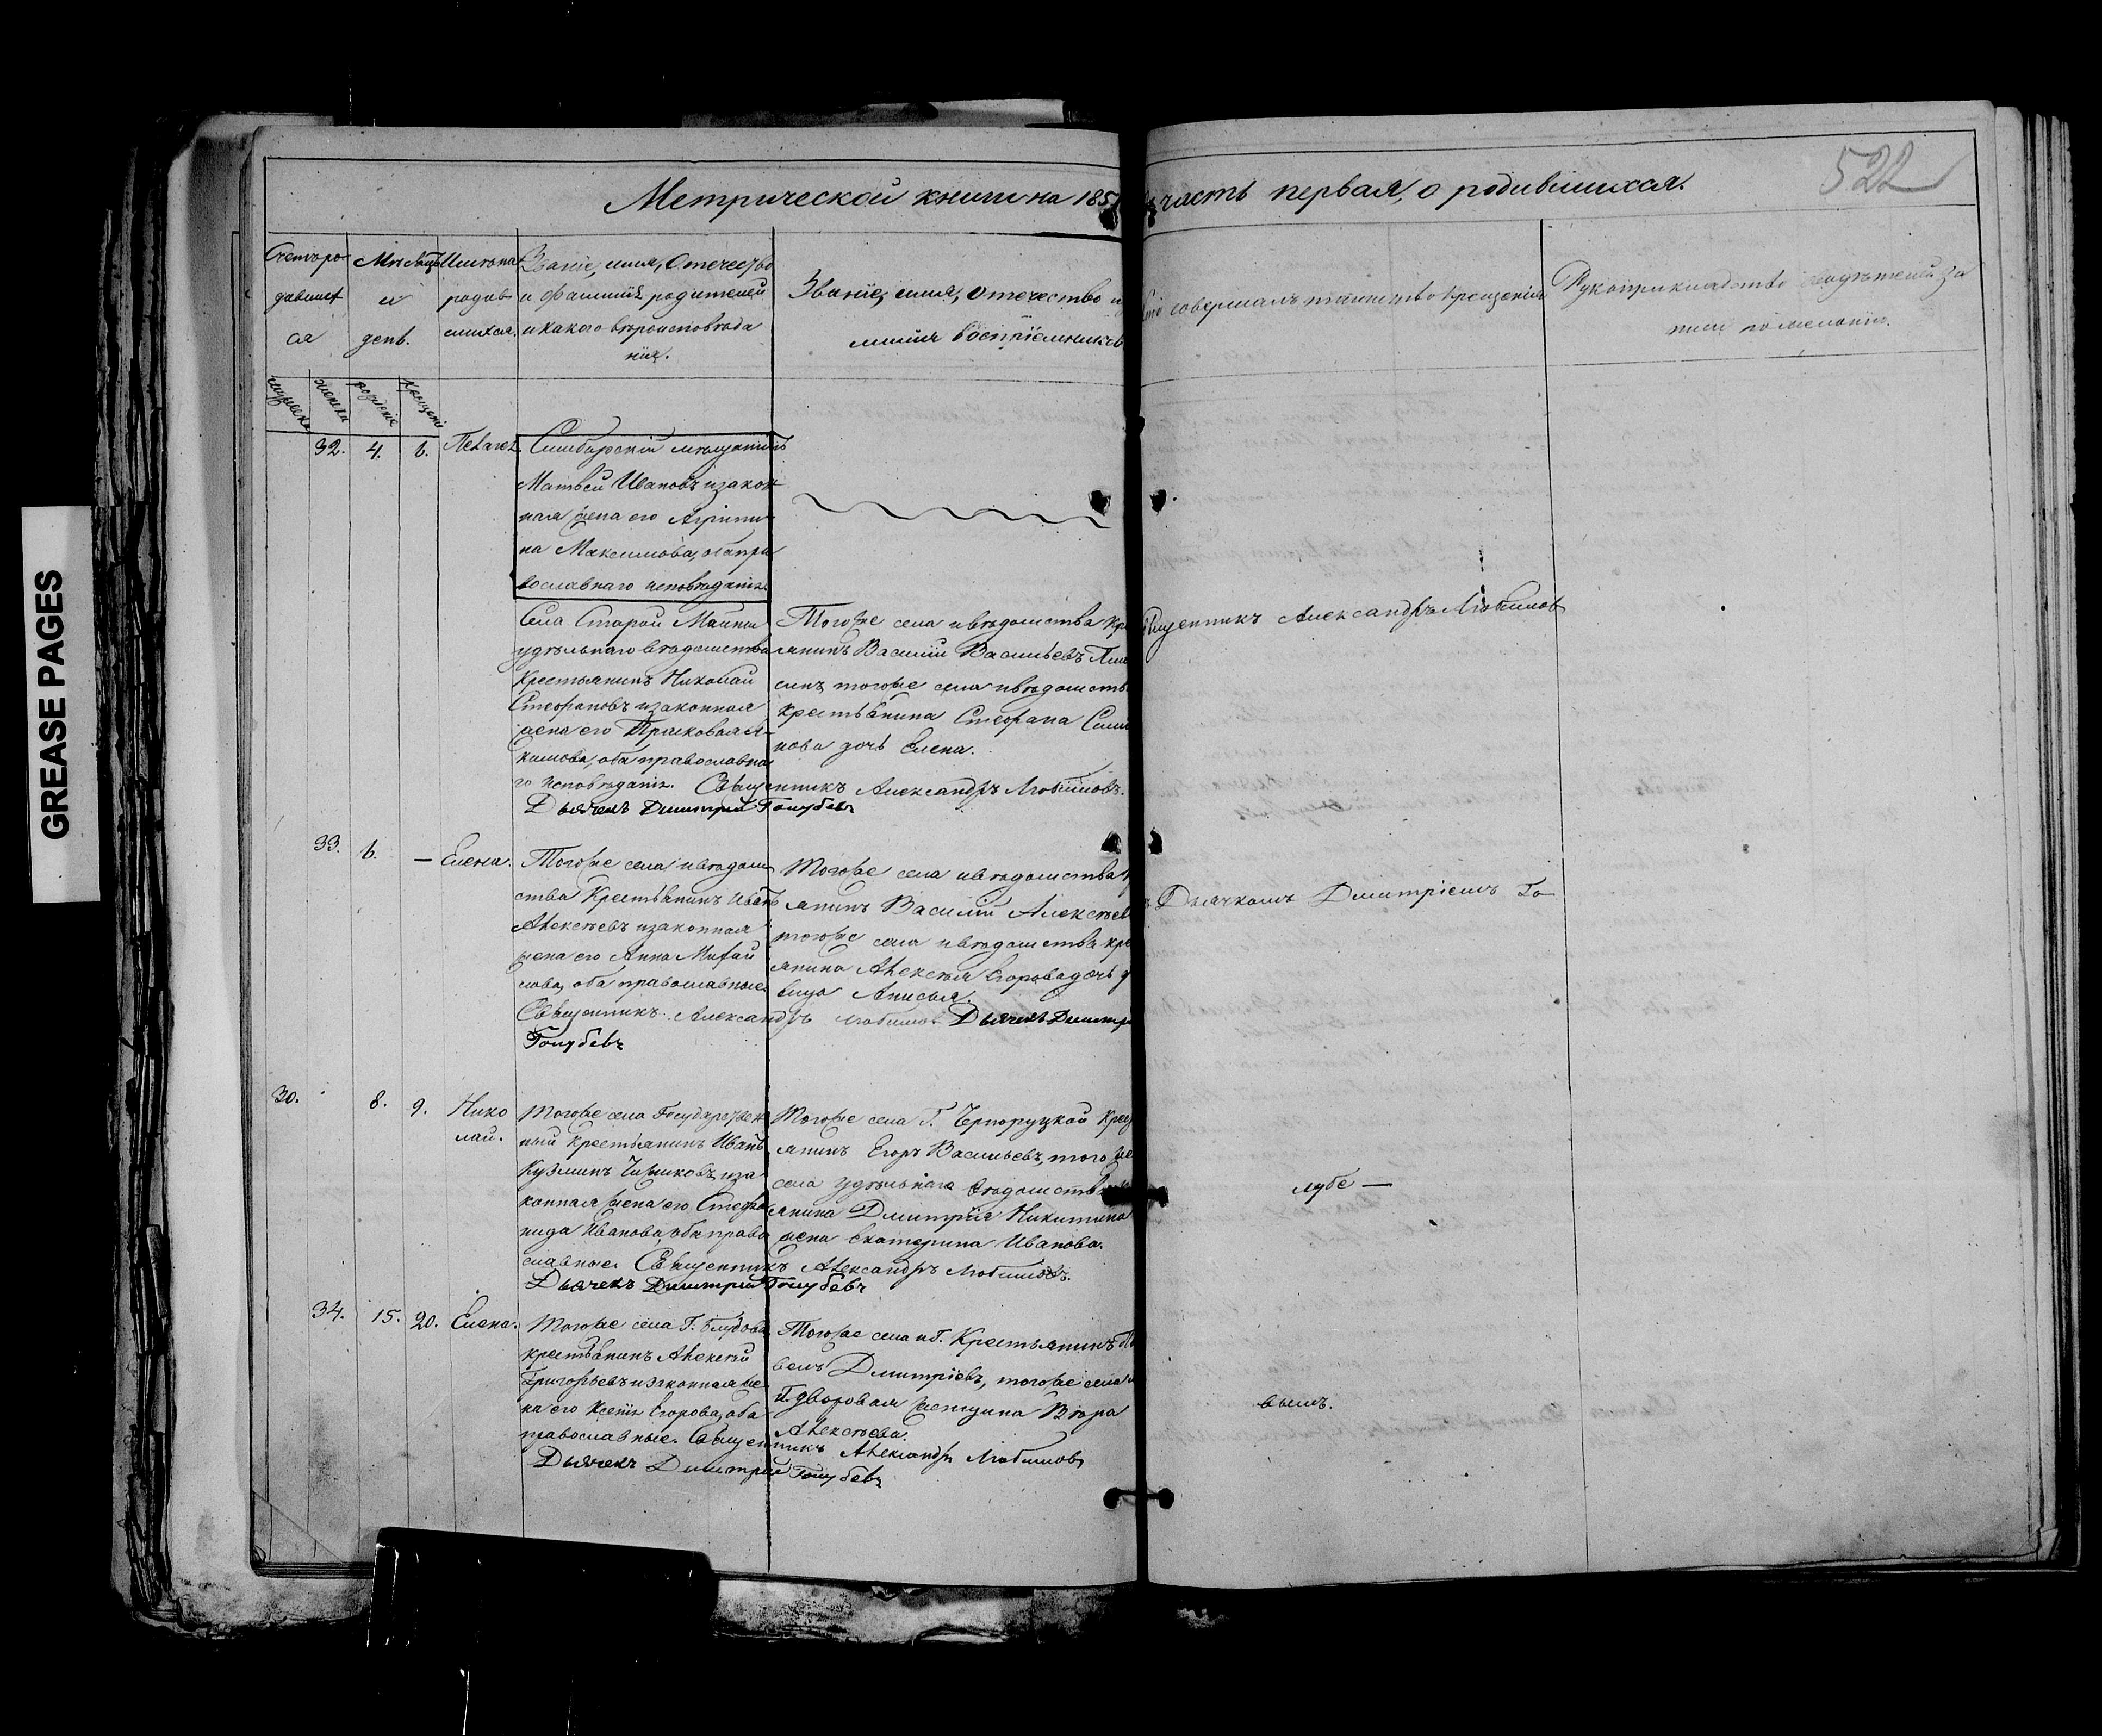 GREASE PAGES
522
Метрической книги на 185
часть первая, о родившихся.
Счетъ ро-
дивших
ся
Мѣсяцъ
и
день.
Имена
родив
шихся.
Званіе, имя, Отечество
и фамилія родителей
и какого вѣроисповѣда
нія.
Званіе, имя, отечество и
милія воспріемниковъ
совершалъ таинство крещенія
Рукоприкладство свидѣтелей за
писи по желанію.
мужеска
женска
рожденіе
крещеніе
32. 4. 6.
Симбирскій мѣщанинъ
Матвей Ивановъ и закон
ная жена его Агрипи-
на Максимова, оба пра
вославнаго исповѣданія.
Села Старой Майны
удѣльнаго вѣдомства
Крестьянинъ Николай
Стефановъ и законная
жена его Прасковья А-
кимова, оба православна
го исповѣданія. Священникъ Александръ Любимовъ.
Дьячекъ Димитрій Голубевъ
Тогоже села и вѣдомства кре
янинъ Василій Васильевъ
тогоже села и вѣдомства
крестьянина Стефана Сим
нова дочь Елена.
Священникъ Александръ Любимов
33. 6. — Елена.
Тогоже села и вѣдом
ства Крестьянинъ Иванъ
Алексѣевъ и законная
жена его Анна Михай
лова, оба православные
Священникъ Александръ Любимов Дьячекъ Димитр
Голубевъ
Тогоже села и вѣдомства
янинъ Василій Алексѣев
тогоже села и вѣдомства кре
янина Алексѣя Егорова дочь д
вица Анисья.
Дьячкомъ Димитріемъ Го-
30. 8. 9. Нико
лай.
Тогоже села Государствен
ный крестьянинъ Иванъ
Кузминъ Чижиковъ, и за
конная жена его Стефа
нида Иванова, оба право
славные. Священникъ Александръ Любимовъ.
Дьячекъ Димитрій Голубевъ
Тогоже села Г. Черноруцкой Крес
янинъ Егоръ Васильевъ, того же
села удѣльнаго вѣдомства
янина Дмитрія Никитина
жена Екатерина Иванова.
лубе —
34. 15. 20. Елена.
Тогоже села Г. Блудова
крестьянинъ Алексѣй
Григорьевъ и законная же
на его Ксенія Егорова, оба
православные. Священникъ Александръ Любимовъ
Дьячекъ Димитрій Голубевъ
Тогоже села и Г. Крестьянинъ Па
велъ Дмитріевъ, тогоже села и
Г. дворовая женщина Вѣра
Алексѣева.
вымъ.